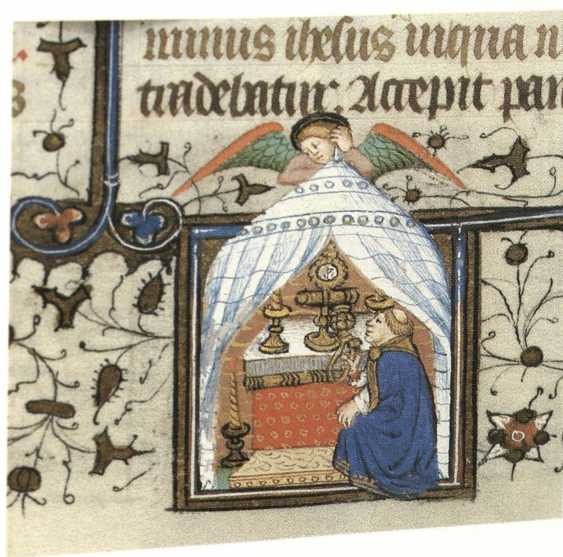 minus ihesus inqua n
tradebatur: Accepit pan